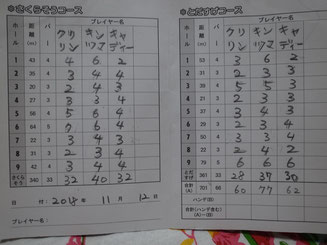 *さくらそうコース
プレイヤー名
ホール 距離(m) パー クリリン キンツマ キャディー
1 43 4 4 6 2
2 35 3 3 4 4
3
4 27 3 3 3 4
5 58 4 5 6 4
6 64 5
7 22 3
8 31 3 2 3 4
9 42 4 3 4 4
さくらそう 340 33 32 40 32
日付 2018年 11月 12日
プレイヤー名:
*とだすけコース
プレイヤー名
ホール 距離(m) パー クリリン キンツマ キャディー
1 53 4 3 6 2
2 31 3 2 3 3
3 5 5 3
4 2 3 3
5 3 4 3
6 29 3 2 3 4
7 3 3 3
8 22 3 2 4 2
9 6 6 6
とだすけ 361 33 28 37 30
合計 701 66 60 77 62
ハンデ(B)
合計(ハンデ含む) (A)-(B)